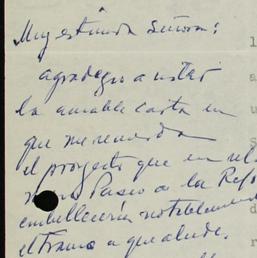 Muy estimada Señora:
agradezco a usted
la amable carta en
que me recuerda
el proyecto que en
Paseo de la Refo
embellecería notablemente
el tramo a que alude.